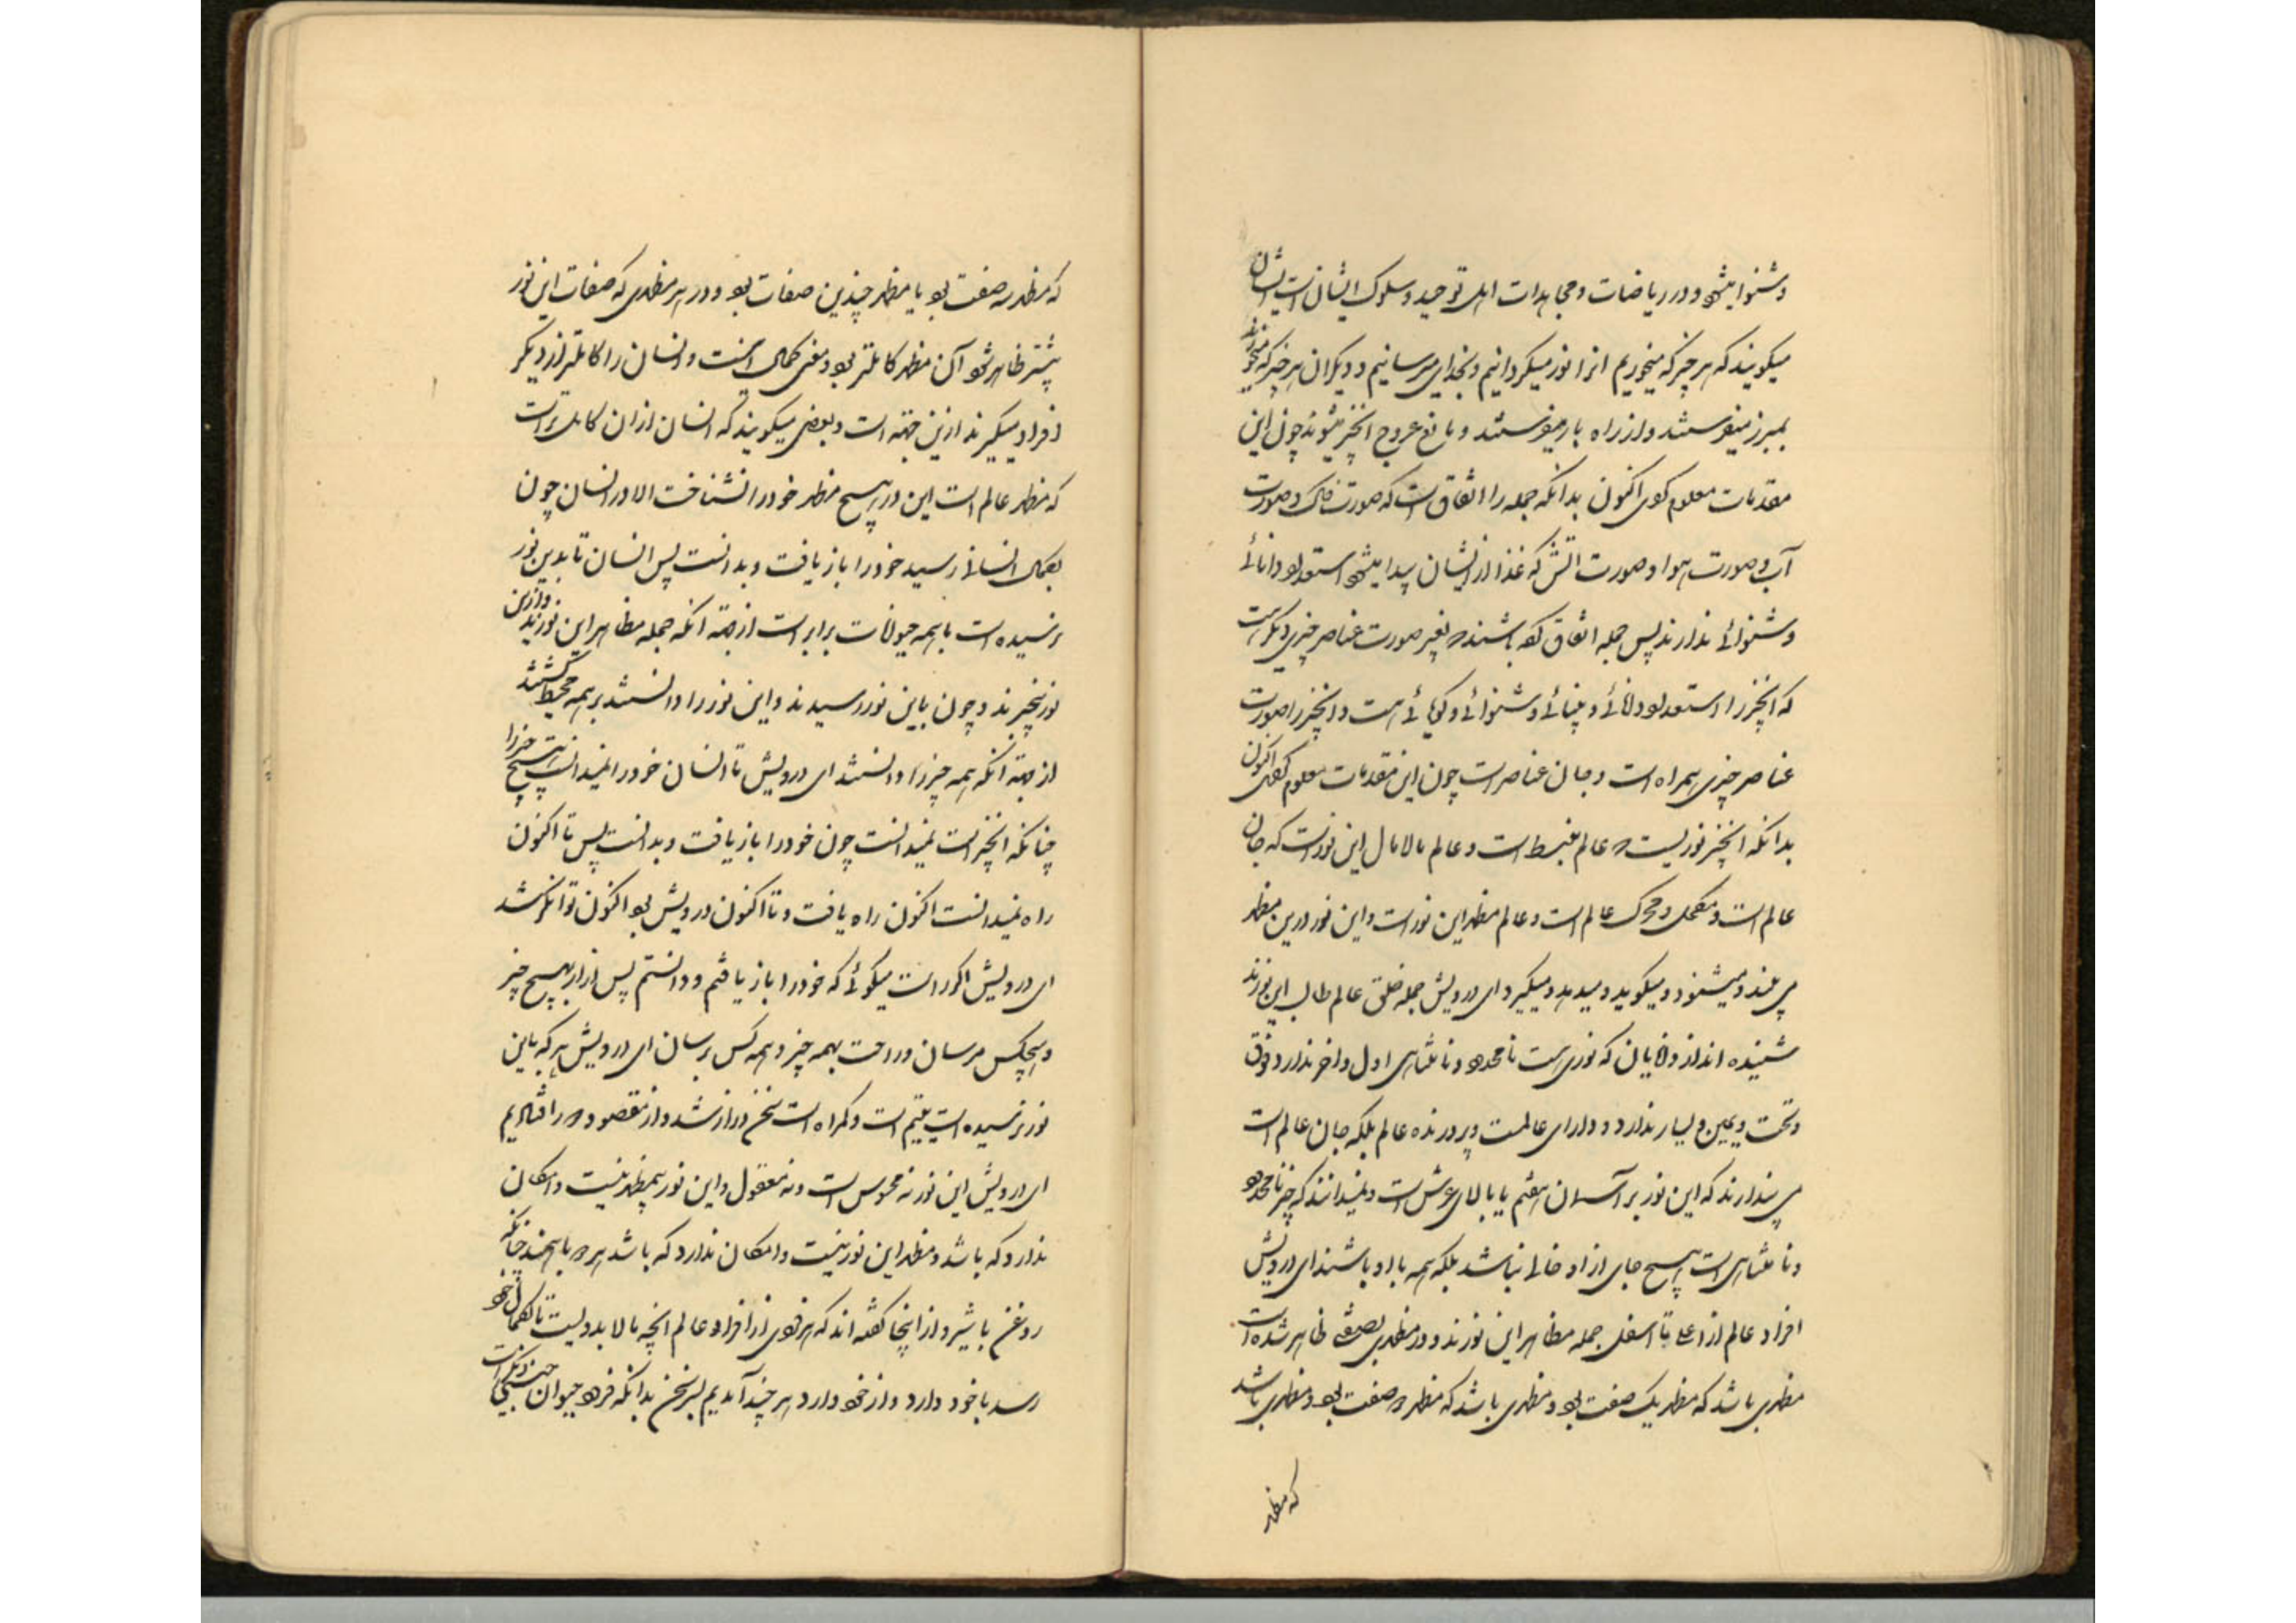 و شنوا میشود و در ریاضات و مجاهدات اهل توحید و سلوک ایشان اینست ایشان
میکویند که هر چیز که میخوریم انرا نور میکردانیم و بخدای میرسانیم و دیکران هر چیز که میخورند
بمبرز میفرستند و از راه باز میفرستند و مانع عروج انچیز میشوند چون این
مقدمات معلوم کردی اکنون بدانکه جمله را اتفاق است که صورت خاک و صورت
آب و صورت هوا و صورت اتش که غذا از ایشان پیدا میشود استعداد دانائی
و شنوائی ندارند پس جمله اتفاق کرده باشند که بغیر صورت عناصر چیزی دیکر است
که انچیز را استعداد دانائی و بینائی و شنوائی و کویائی هست و انچیز را صورت
عناصر چیزی همراه است و جان عناصر است چون این مقدمات معلوم کردی اکنون
بدانکه انچیز نوریست که عالم منبسط است و عالم مالامال این نور است که جان
عالم است و محرک عالم است و عالم مظهر این نور است و این نور درین مظهر
می بیند و میشنود و میکوید و میدهد و میکیرد ای درویش جمله خلق عالم طالب این نورند
شنیده اند از دانایان که نوری هست نامحدود و نامتناهی اول و اخر ندارد و فوق
و تحت و یمین و یسار ندارد و دارای عالمست و پرورنده عالم بلکه جان عالم است
می پندارند که این نور بر آسمان هفتم یا بالای عرش است و نمیدانند که چیز نامحدود
و نامتناهی است هیچ جای از او خالی نباشد بلکه همه با او باشند ای درویش
افراد عالم از اعلی تا اسفل جمله مظاهر این نورند و در مظهری بصفتی ظاهر شده است
مظهری باشد که مظهر یک صفت بود و مظهری باشد که مظهر دو صفت بود و مظهری باشد
که مظهر
که مظهر سه صفت بود یا مظهر چندین صفات بود و در هر مظهری که صفات این نور
بیشتر ظاهر شود آن مظهر کاملتر بود و معنی کمال اینست و انسان را کاملتر از دیکر
افراد میکیرند ازین جهته است و بعضی میکویند که انسان از ان کامل تر است
که مظهر عالم است این در هیچ مظهر خود را نشناخت الا در انسان چون
بکمال انسانی رسید خود را باز یافت و بدانست پس انسان تا بدین نور
نرسیده است با همه حیوانات برابر است از جهته انکه جمله مظاهر این نورند و ازین
نور بیخبرند و چون باین نور رسیدند و این نور را دانستند بر همه محیط کشتند
از جهته انکه همه چیز را دانستند ای درویش تا انسان خود را نمیدانست هیچ چیز را
چنانکه انچیز است نمیدانست چون خود را باز یافت و بدانست پس تا اکنون
راه نمیدانست اکنون راه یافت و تا اکنون درویش بود اکنون توانکر شد
ای درویش اکر راست میکوئی که خود را باز یافتم و دانستم پس ازار بهیچ چیز
و هیچکس مرسان و راحت بهمه چیز و همه کس برسان ای درویش هر که باین
نور نرسیده است یتیم است و کمراه است سخن دراز شد و از مقصود دور افتادیم
ای درویش این نور نه محسوس است و نه معقول و این نور بیمظهر نیست و امکان
ندارد که باشد و مظهر این نور نیست و امکان ندارد که باشد هر دو با همند چنانکه
روغن با شیر و از اینجا کفته اند که هر فردی از افراد عالم انچه مالابد ویست تا بکمال خود
رسد با خود دارد و از خود دارد هر چند آمدیم بسر سخن بدانکه فرد حیوان